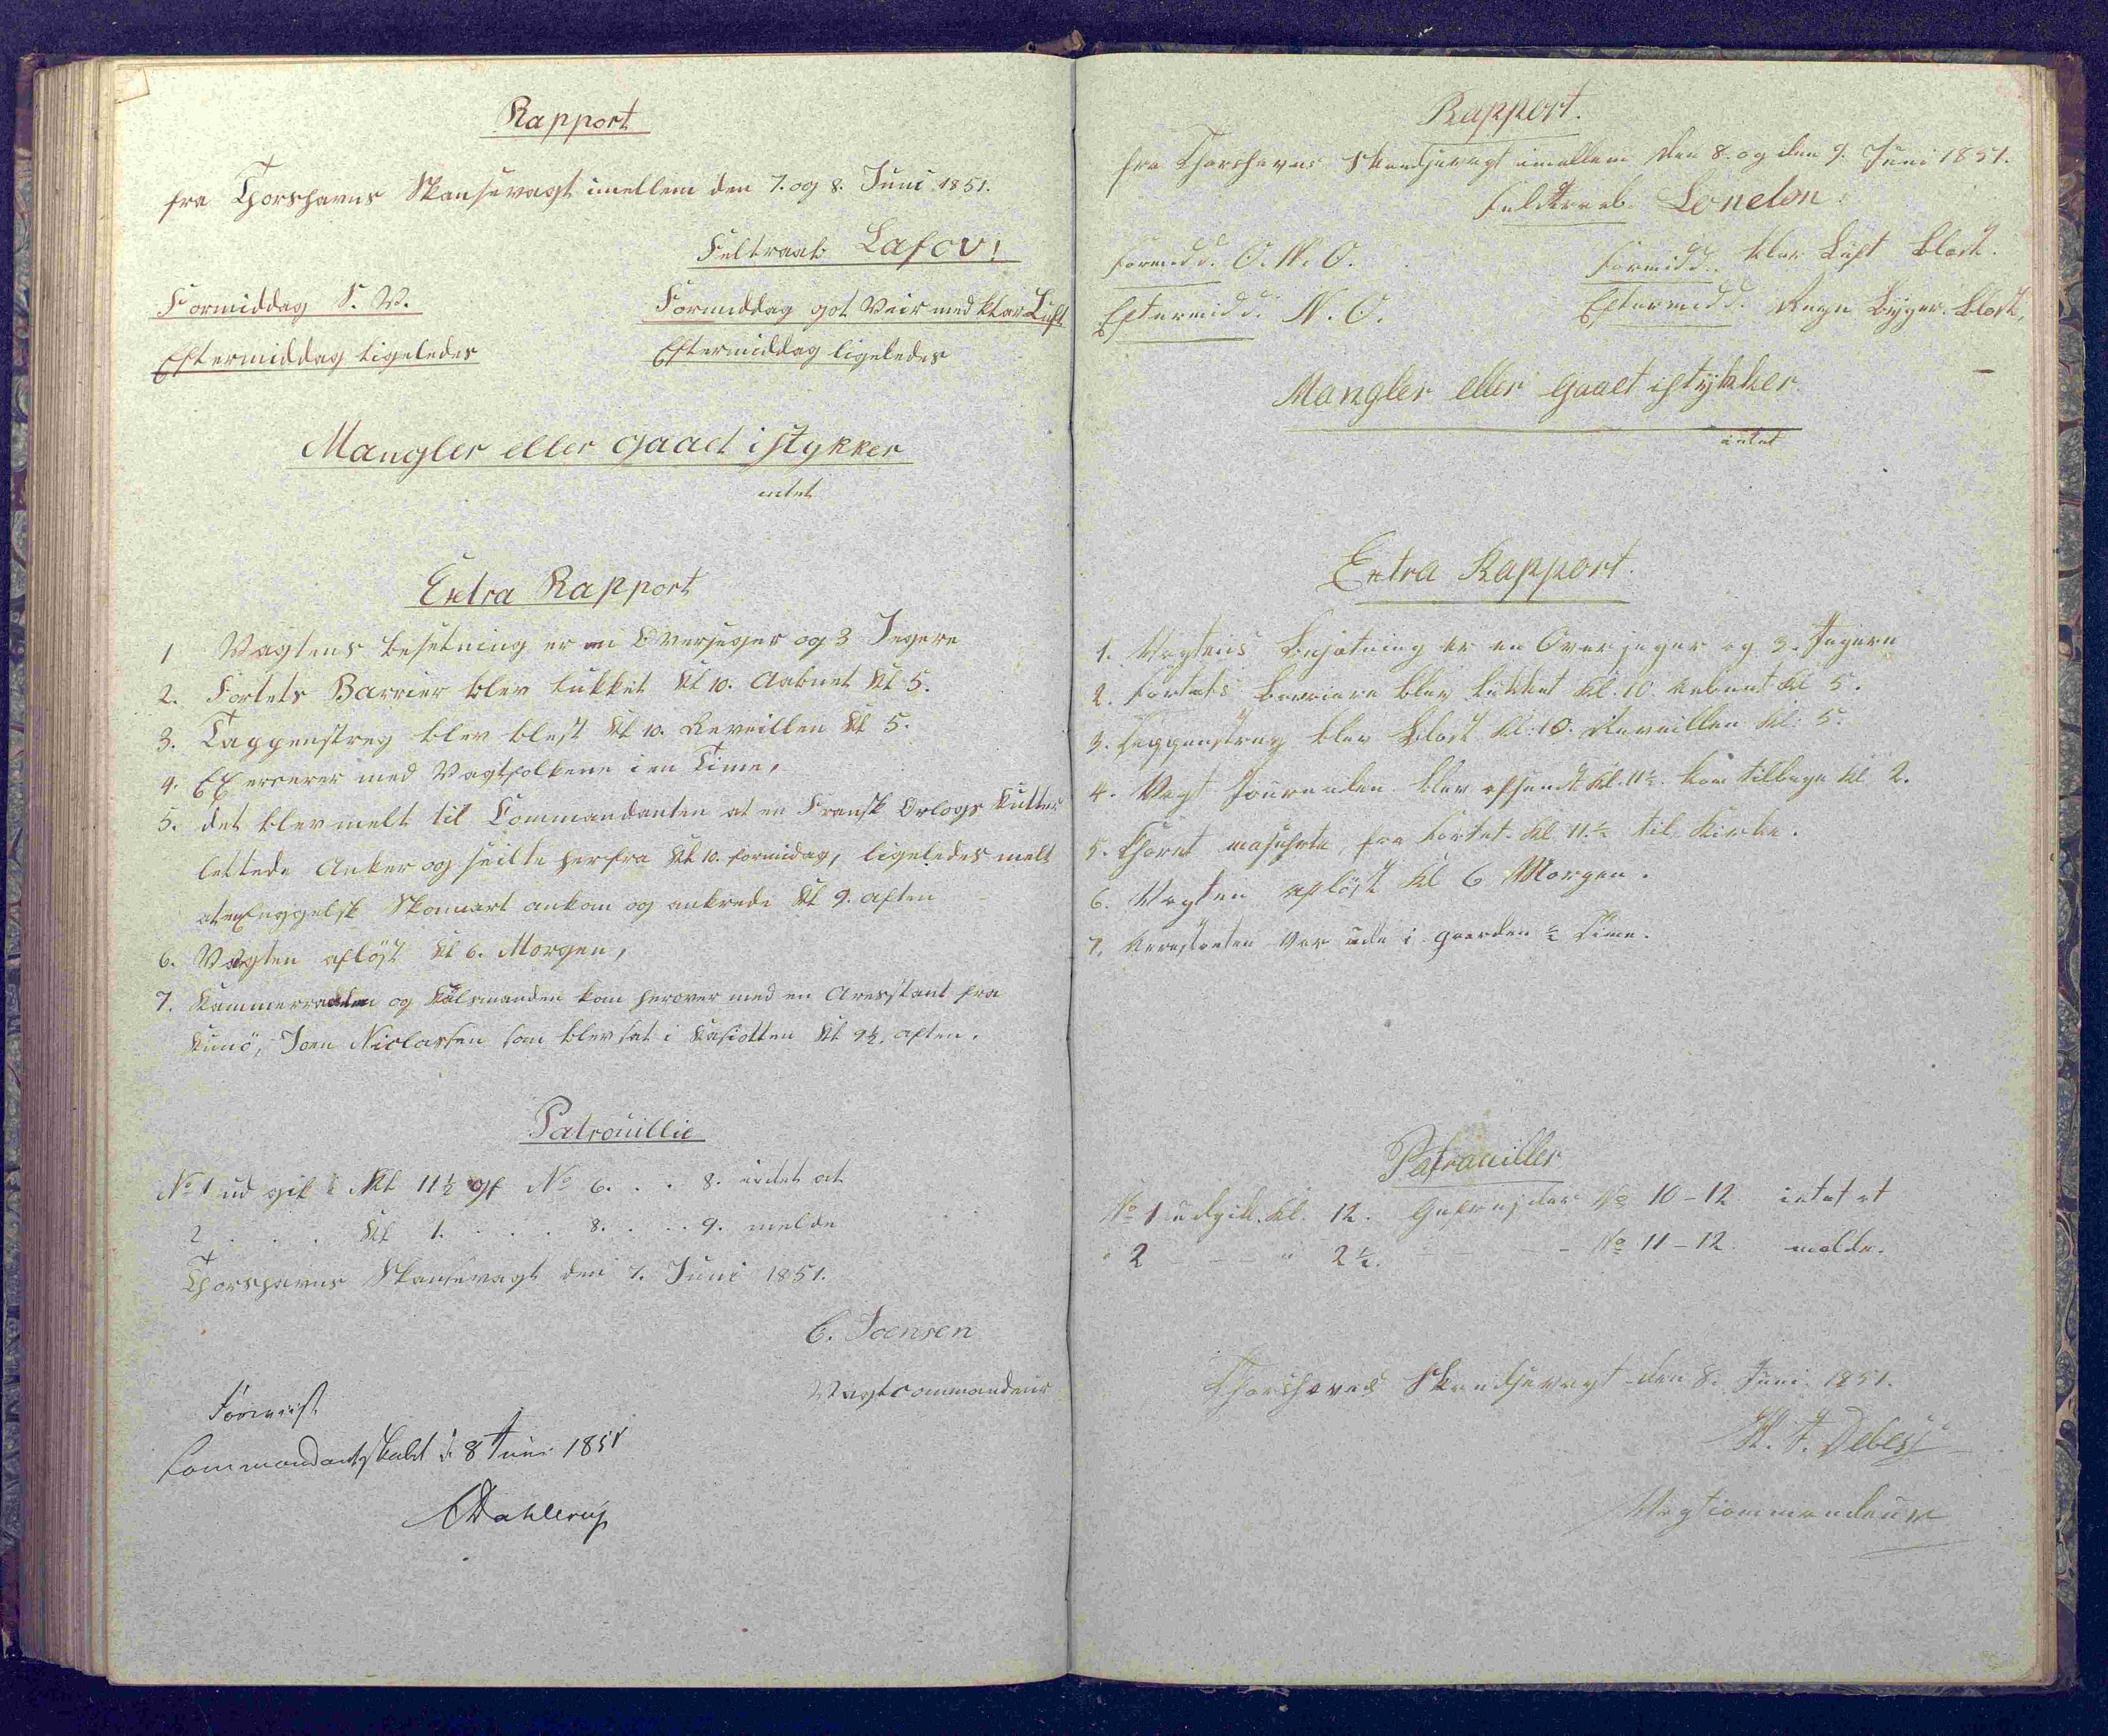 Rapport
fra Thorshavns Skansevagt imellem den 7. og 8. Juni 1851.
Feltraab Lafov!
Formiddag S. V.
Formiddag got Veir med klar Luft
Eftermiddag ligeledes
Eftermiddag ligeledes
Mangler eller gaaet istykker
intet
Extra Rapport
1 Vagtens besetning er en Overjeger og 3 Jegere
2. Fortets Barrier blev lukket Kl 10. Aabnet Kl 5.
3. Tappenstreg blev blest Kl 10. Reveillen Kl 5.
4. Exerserer med Vagtfolkene i en Time,
5. det blev melt til Commandanten at en Fransk Orlogs Kutter
lettede Anker og seilte herfra Kl 10. formidag, ligeledes melt
at en Eggelsk Skonnart ankom og ankrede Kl 9. aften
6. Vagten afløst Kl 6. Morgen,
7. Kammerraaden og kom herover med en Aresstant fra
Kunö, Joen Niclassen som blev sat i Kasiotten Kl 9½. aften.
Patrouillie
No 1 ud gik Kl 11½ gf No 6. . . 8. intet at
2 . . . Kl 1. . . . 8. . . . 9. melde
Thorshavns Skansevagt den 7. Juni 1851.
C. Joensen
Vagtcommandeur
Foreviist
Commandantskabet d. 8 Juni 1851
Dahlerup
Rapport.
fra Thorshavns Skandsevagt imellem den 8. og den 9. Juni 1851.
Feldtraab. London.
Formidd. O. N. O.
Formidd. klar Luft blæst.
Eftermidd. N. O.
Eftermidd. Regn Byger. blæst,
Mangler eller gaaet istykker
intet
Extra Rapport.
1. Vagtens Besætning er en Overjeger og 3. Jegere
2. Fortets barriere blev lukket Kl. 10. Aabnet Kl 5.
3. Tappenstreg blev blæst Kl: 10. Reveillen Kl: 5.
4. Vagt Journalen blev afsendt Kl. 11½. kom tilbage Kl 2.
5. Choret mascherte fra Fortet. Kl 11.½ til Kirke.
6. Vagten afløst Kl 6 Morgen.
7. Arrestanten var ude i gaarden ½ Time.
Patrouiller
No 1 udgik. Kl. 12. Gefrejder No 10-12 intet at
" 2 - - " 2½. - - - No 11-12. melde.
Thorshavns Skandsevagt den 8. Juni 1851.
Debess
Vagtcommandeur